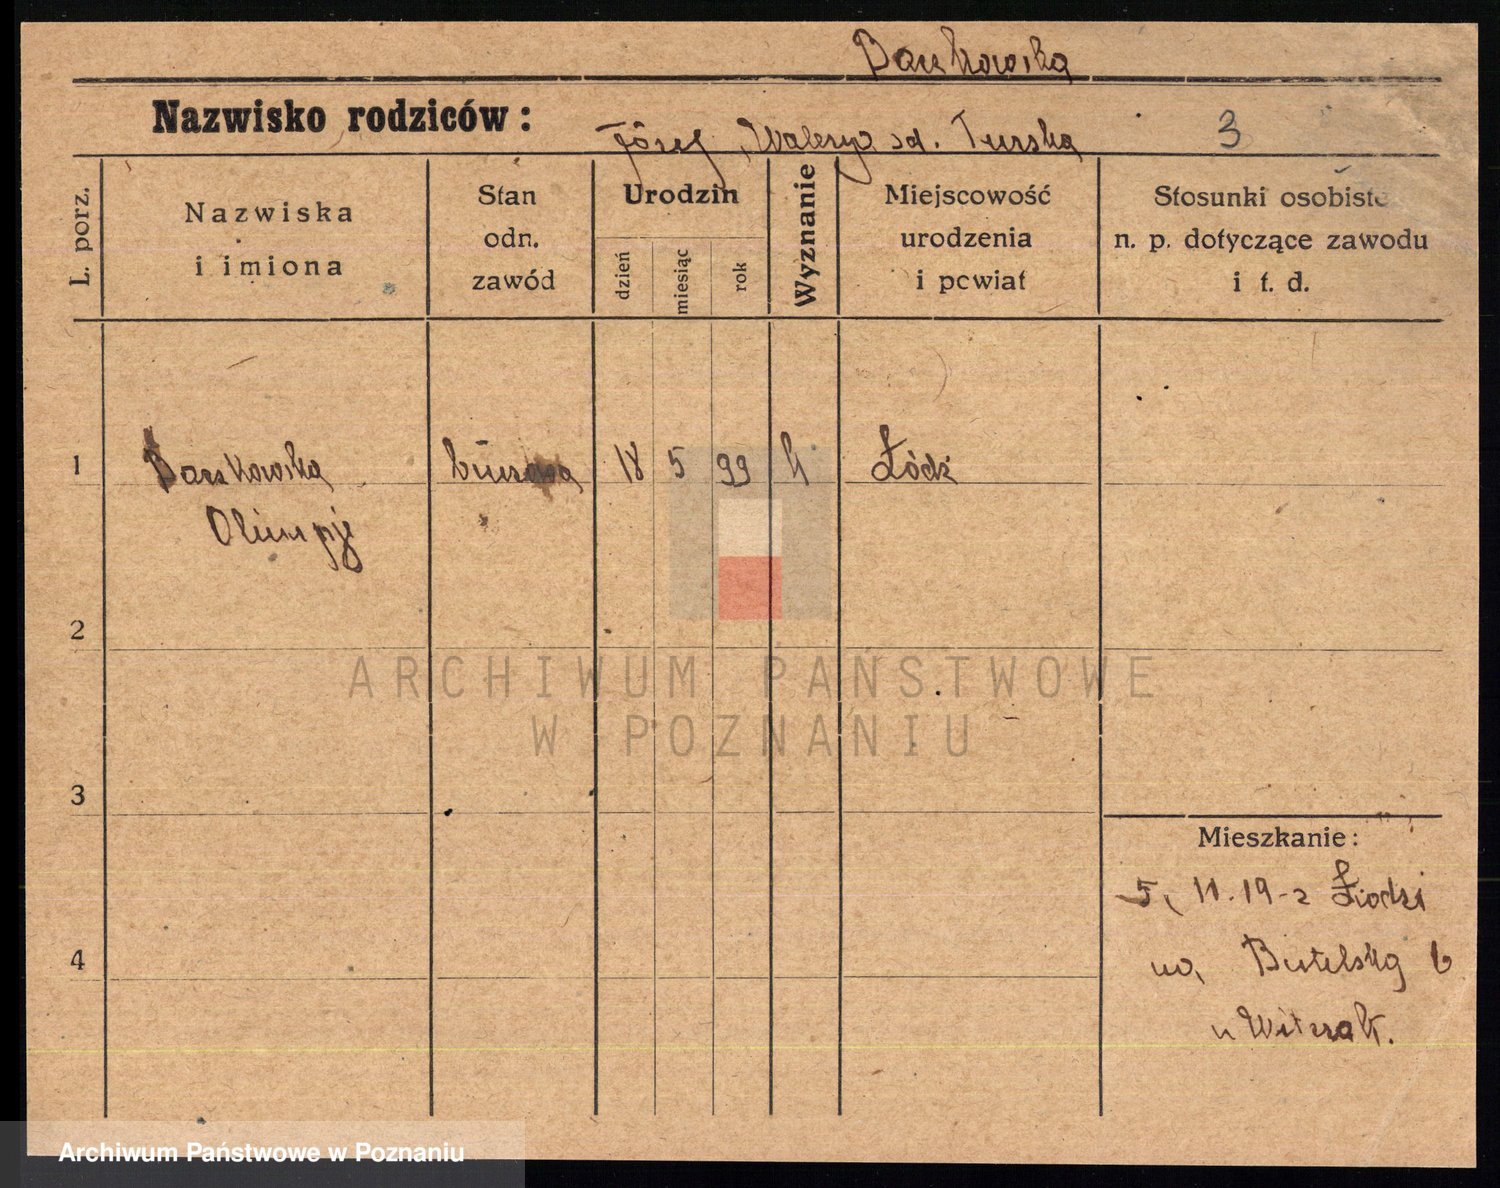 Barkowska
Nazwisko rodziców: Józef, Walerya zd. Turska 3
L. porz.
Nazwiska
i imiona
Stan
odn.
zawód
Urodzin
dzień
miesiąc
rok
Wyznanie
Miejscowość
urodzenia
i powiat
Stosunki osobiste
n. p. dotyczące zawodu
i t. d.
1 Barkowska 18 5 99 Łódź
Olimpje
2
ARCHIWUM PAŃSTWOWE
W POZNANIU
3
Mieszkanie:
5, 11. 19 - z Łodzi
4 na, Butelską 6
u Witczak.
Archiwum Państwowe w Poznaniu